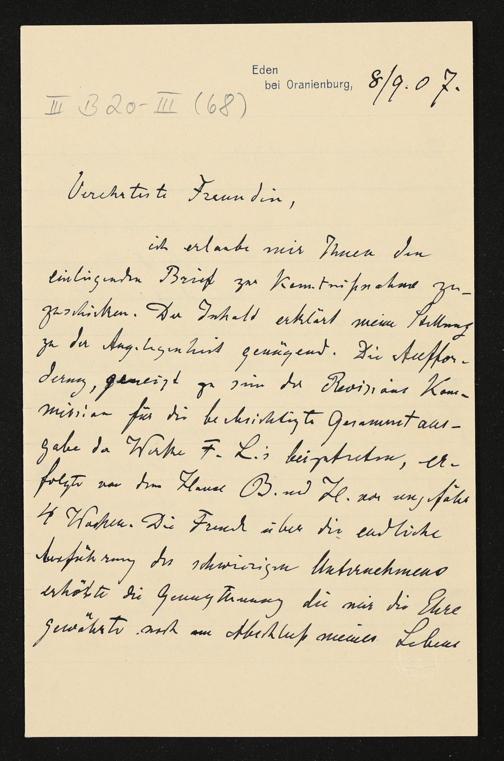 Eden
bei Oranienburg, 8/9. 07.
III B 20-III (68)
Verehrteste Freundin,
ich erlaube mir Ihnen den
einliegenden Brief zur Kenntnißnahme zu-
zuschicken. Der Inhalt erklärt meine Stellung
zu der Angelegenheit genügend. Die Auffor-
derung, geneigt zu sein der Revisions Kom-
mission für die beabsichtigte Gesammtaus-
gabe der Werke F. L.'s beizutreten, er-
folgte von dem Hause B. und H. vor ungefähr
4 Wochen. Die Freude über die endliche
Ausführung des schwierigen Unternehmens
erhöhte die Genugthuung die mir die Ehre
gewährte noch am Abschluß meines Lebens